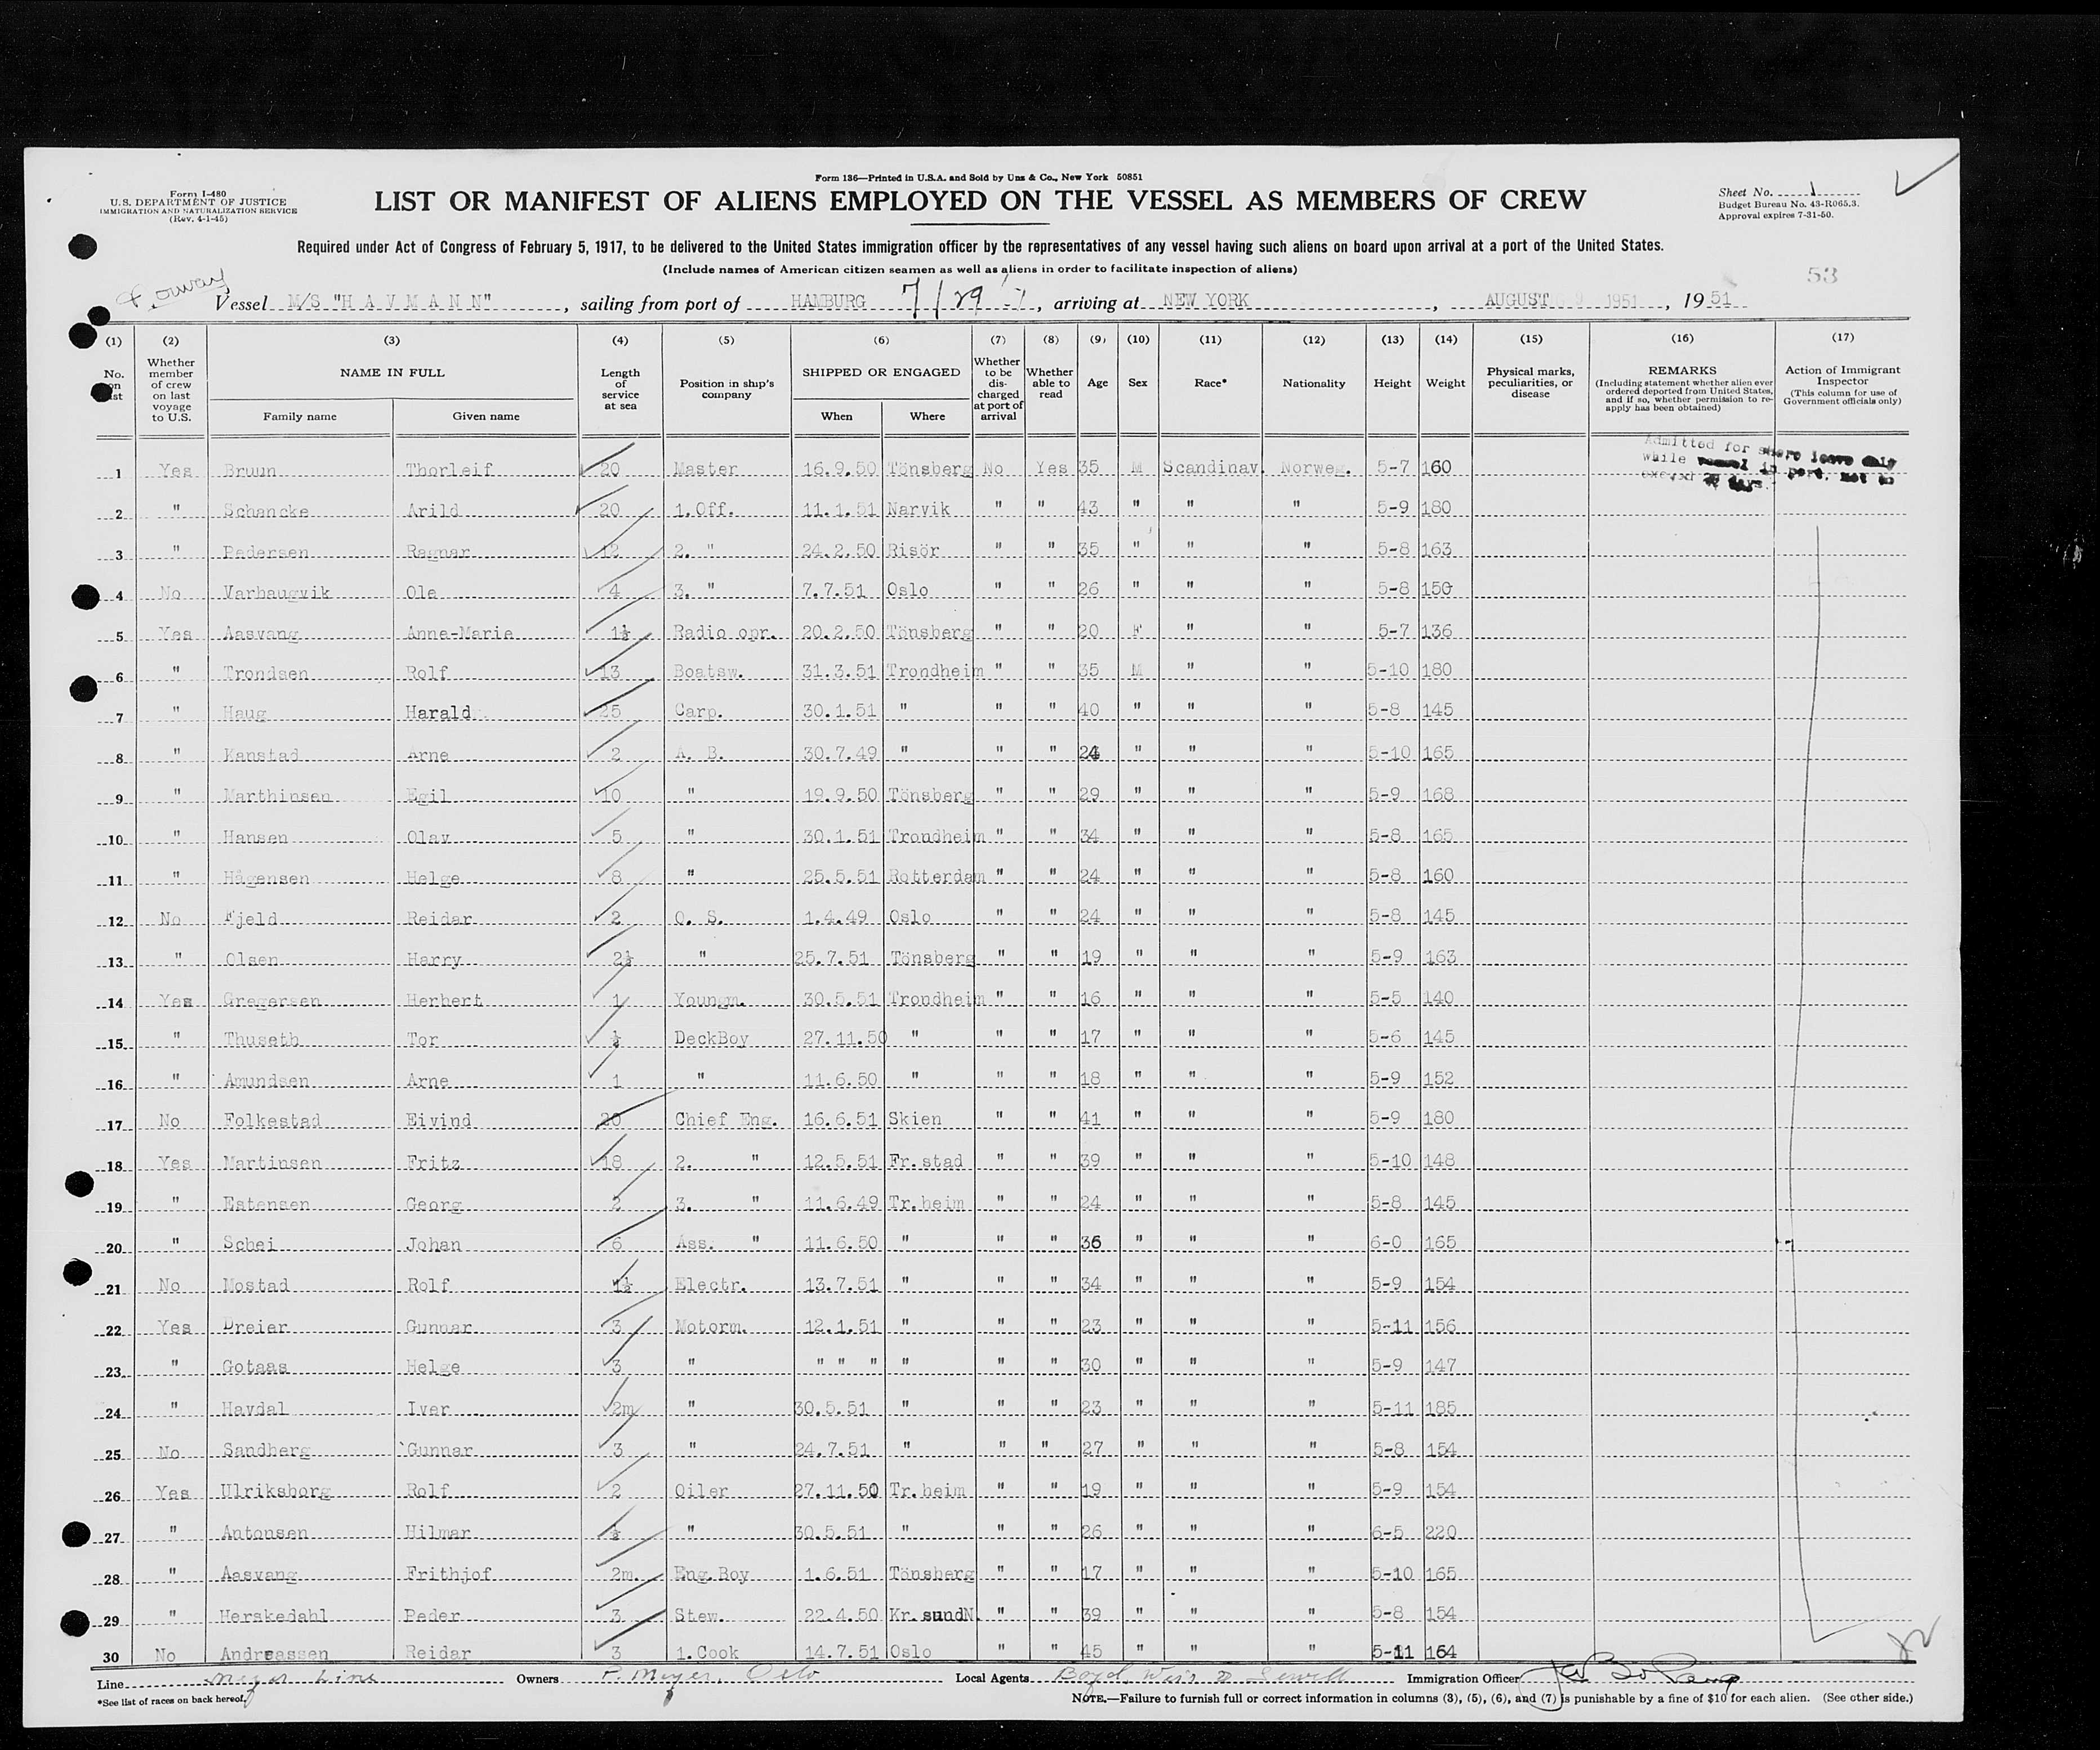 Form 136—Printed in U.S.A. and Sold by Unz & Co., New York 50851
Form I-480
U.S. DEPARTMENT OF JUSTICE
IMMIGRATION AND NATURALIZATION SERVICE
(Rev. 4-1-45)
LIST OR MANIFEST OF ALIENS EMPLOYED ON THE VESSEL AS MEMBERS OF CREW
Sheet No. 1
Budget Bureau No. 43-R065.3.
Approval expires 7-31-50.
Required under Act of Congress of February 5, 1917, to be delivered to the United States immigration officer by the representatives of any vessel having such aliens on board upon arrival at a port of the United States.
(Include names of American citizen seamen as well as aliens in order to facilitate inspection of aliens)
53
Vessel M/S "H A V M A N N", sailing from port of HAMBURG 7/29, arriving at NEW YORK, AUGUST 9 1951, 1951
(1) (2) (3) (4) (5) (6) (7) (8) (9) (10) (11) (12) (13) (14) (15) (16) (17)
No. on list
Whether member of crew on last voyage to U.S.
NAME IN FULL
Family name Given name
Length of service at sea
Position in ship's company
SHIPPED OR ENGAGED
When Where
Whether to be discharged at port of arrival
Whether able to read
Age Sex Race* Nationality Height Weight
Physical marks, peculiarities, or disease
REMARKS
(Including statement whether alien ever ordered deported from United States, and if so, whether permission to reapply has been obtained)
Action of Immigrant Inspector
(This column for use of Government officials only)
Admitted for shore leave only
while vessel in port. Not to
exceed 29 days.
1 Yes Bruun Thorleif 20 Master 16.9.50 Tönsberg No Yes 35 M Scandinav. Norweg. 5-7 160
2 " Schancke Arild 20 1.Off. 11.1.51 Narvik " " 43 " " " 5-9 180
3 " Pedersen Ragnar 12 2. " 24.2.50 Risör " " 35 " " " 5-8 163
4 No Varhaugvik Ole 4 3. " 7.7.51 Oslo " " 26 " " " 5-8 150
5 Yes Aasvang Anne-Marie 1½ Radio opr. 20.2.50 Tönsberg " " 20 F " " 5-7 136
6 " Trondsen Rolf 13 Boatsw. 31.3.51 Trondheim " " 35 M " " 5-10 180
7 " Haug Harald 25 Carp. 30.1.51 " " " 40 " " " 5-8 145
8 " Kanstad Arne 2 A. B. 30.7.49 " " " 24 " " " 5-10 165
9 " Marthinsen Egil 10 " 19.9.50 Tönsberg " " 29 " " " 5-9 168
10 " Hansen Olav 5 " 30.1.51 Trondheim " " 34 " " " 5-8 165
11 " Hågensen Helge 8 " 25.5.51 Rotterdam " " 24 " " " 5-8 160
12 No Fjeld Reidar 2 O. S. 1.4.49 Oslo " " 24 " " " 5-8 145
13 " Olsen Harry 2½ " 25.7.51 Tönsberg " " 19 " " " 5-9 163
14 Yes Gregersen Herbert 1 Youngm. 30.5.51 Trondheim " " 16 " " " 5-5 140
15 " Thuseth Tor ½ DeckBoy 27.11.50 " " " 17 " " " 5-6 145
16 " Amundsen Arne 1 " 11.6.50 " " " 18 " " " 5-9 152
17 No Folkestad Eivind 20 Chief Eng. 16.6.51 Skien " " 41 " " " 5-9 180
18 Yes Martinsen Fritz 18 2. " 12.5.51 Fr.stad " " 39 " " " 5-10 148
19 " Estensen Georg 2 3. " 11.6.49 Tr.heim " " 24 " " " 5-8 145
20 " Schei Johan 6 Ass. " 11.6.50 " " " 36 " " " 6-0 165
21 No Mostad Rolf 1½ Electr. 13.7.51 " " " 34 " " " 5-9 154
22 Yes Dreier Gunnar 3 Motorm. 12.1.51 " " " 23 " " " 5-11 156
23 " Gotaas Helge 3 " " " " " " " 30 " " " 5-9 147
24 " Havdal Iver 2m " 30.5.51 " " " 23 " " " 5-11 185
25 No Sandberg Gunnar 3 " 24.7.51 " " " 27 " " " 5-8 154
26 Yes Ulriksborg Rolf 2 Oiler 27.11.50 Tr.heim " " 19 " " " 5-9 154
27 " Antonsen Hilmar ½ " 30.5.51 " " " 26 " " " 6-5 220
28 " Aasvang Frithjof 2m. Eng.Boy 1.6.51 Tönsberg " " 17 " " " 5-10 165
29 " Herskedahl Peder 3 Stew. 22.4.50 Kr.sundN. " " 39 " " " 5-8 154
30 No Andreassen Reidar 3 1.Cook 14.7.51 Oslo " " 45 " " " 5-11 164
Line Meyer Line Owners P. Meyer, Oslo Local Agents Boyd, Weir & Sewell Immigration Officer
*See list of races on back hereof.
NOTE.—Failure to furnish full or correct information in columns (3), (5), (6), and (7) is punishable by a fine of $10 for each alien. (See other side.)